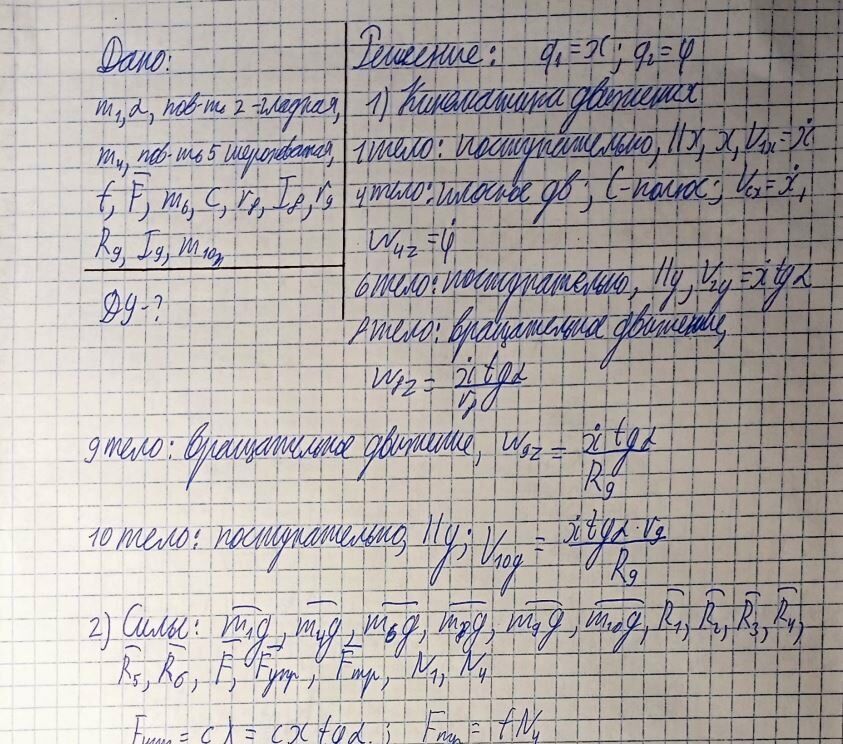 Дано:
m₁, α, пов-ть 2 - гладкая,
m₄, пов-ть 5 шероховатая,
f, F̄, m₆, C, r₈, I₈, r₉
R₉, I₉, m₁₀,
ДУ-?
Решение: q₁ = x; q₂ = φ
1) Кинематика движения
1 тело: поступательно, ||x, x, V₁ₓ = ẋ
4 тело: плоское дв; C - полюс; V_cx = ẋ,
ω₄z = φ̇
6 тело: поступательно, ||y, V_zy = ẋ tgα
8 тело: вращательное движение,
ω₈z = ẋ tgα / r₈
9 тело: вращательное движение, ω₉z = ẋ tgα / R₉
10 тело: поступательно, ||y; V₁₀y = ẋ tgα · r₉ / R₉
2) Силы: m̄₁g, m̄₄g, m̄₆g, m̄₈g, m̄₉g, m̄₁₀g, R̄₁, R̄₂, R̄₃, R̄₄,
R̄₅, R̄₆, F̄, F̄упр, F̄тр, N₁, N₄
Fупр = cλ = cx tgα; Fтр = fN₄